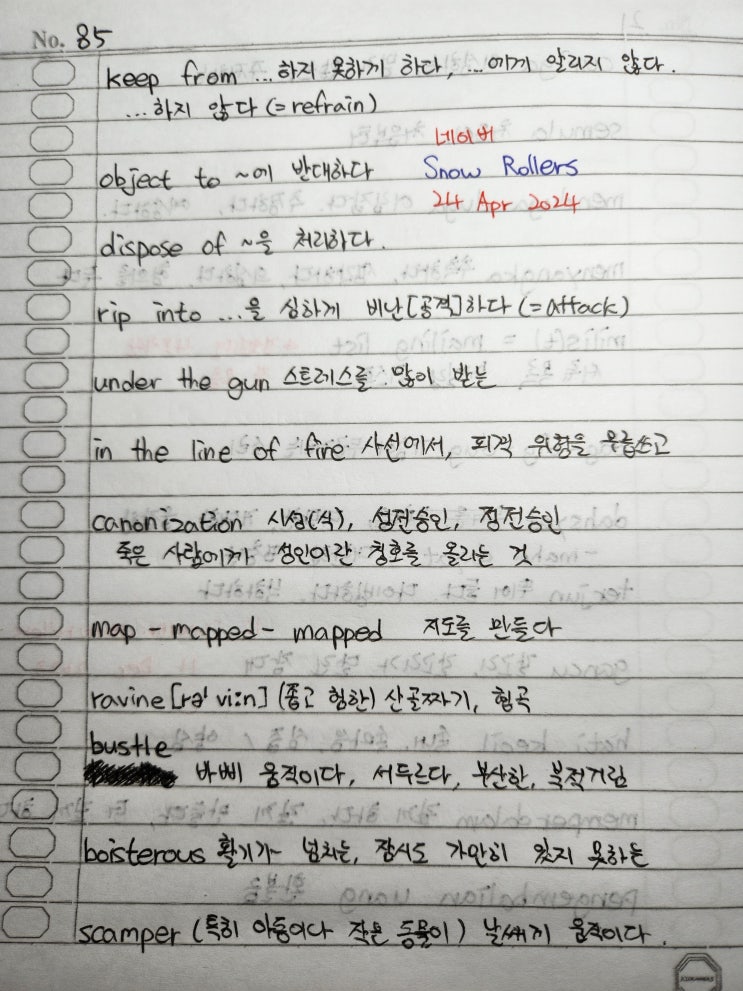 No. 85
keep from ...하지 못하게 하다, ...에게 알리지 않다.
...하지 않다 (=refrain)
네이버
object to ~에 반대하다 Snow Rollers
24 Apr 2024
dispose of ~을 처리하다.
rip into ...을 심하게 비난[공격]하다 (=attack)
under the gun 스트레스를 많이 받는
in the line of fire 사선에서, 피격 위험을 무릅쓰고
canonization 시성(식), 성전승인, 정전승인
죽은 사람에게 성인이란 칭호를 올리는 것
map - mapped - mapped 지도를 만들다
ravine [rəˈviːn] (좁고 험한) 산골짜기, 협곡
bustle
바삐 움직이다, 서두르다, 부산한, 북적거림
boisterous 활기가 넘치는, 잠시도 가만히 있지 못하는
scamper (특히 아동이나 작은 동물이) 날쌔게 움직이다.